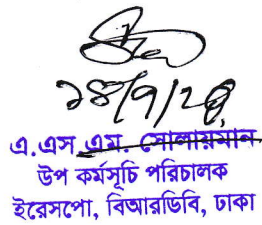 ১৪/৭/২৪
এ.এস.এম. সোলায়মান
উপ কর্মসূচি পরিচালক
ইরেসপো, বিআরডিবি, ঢাকা